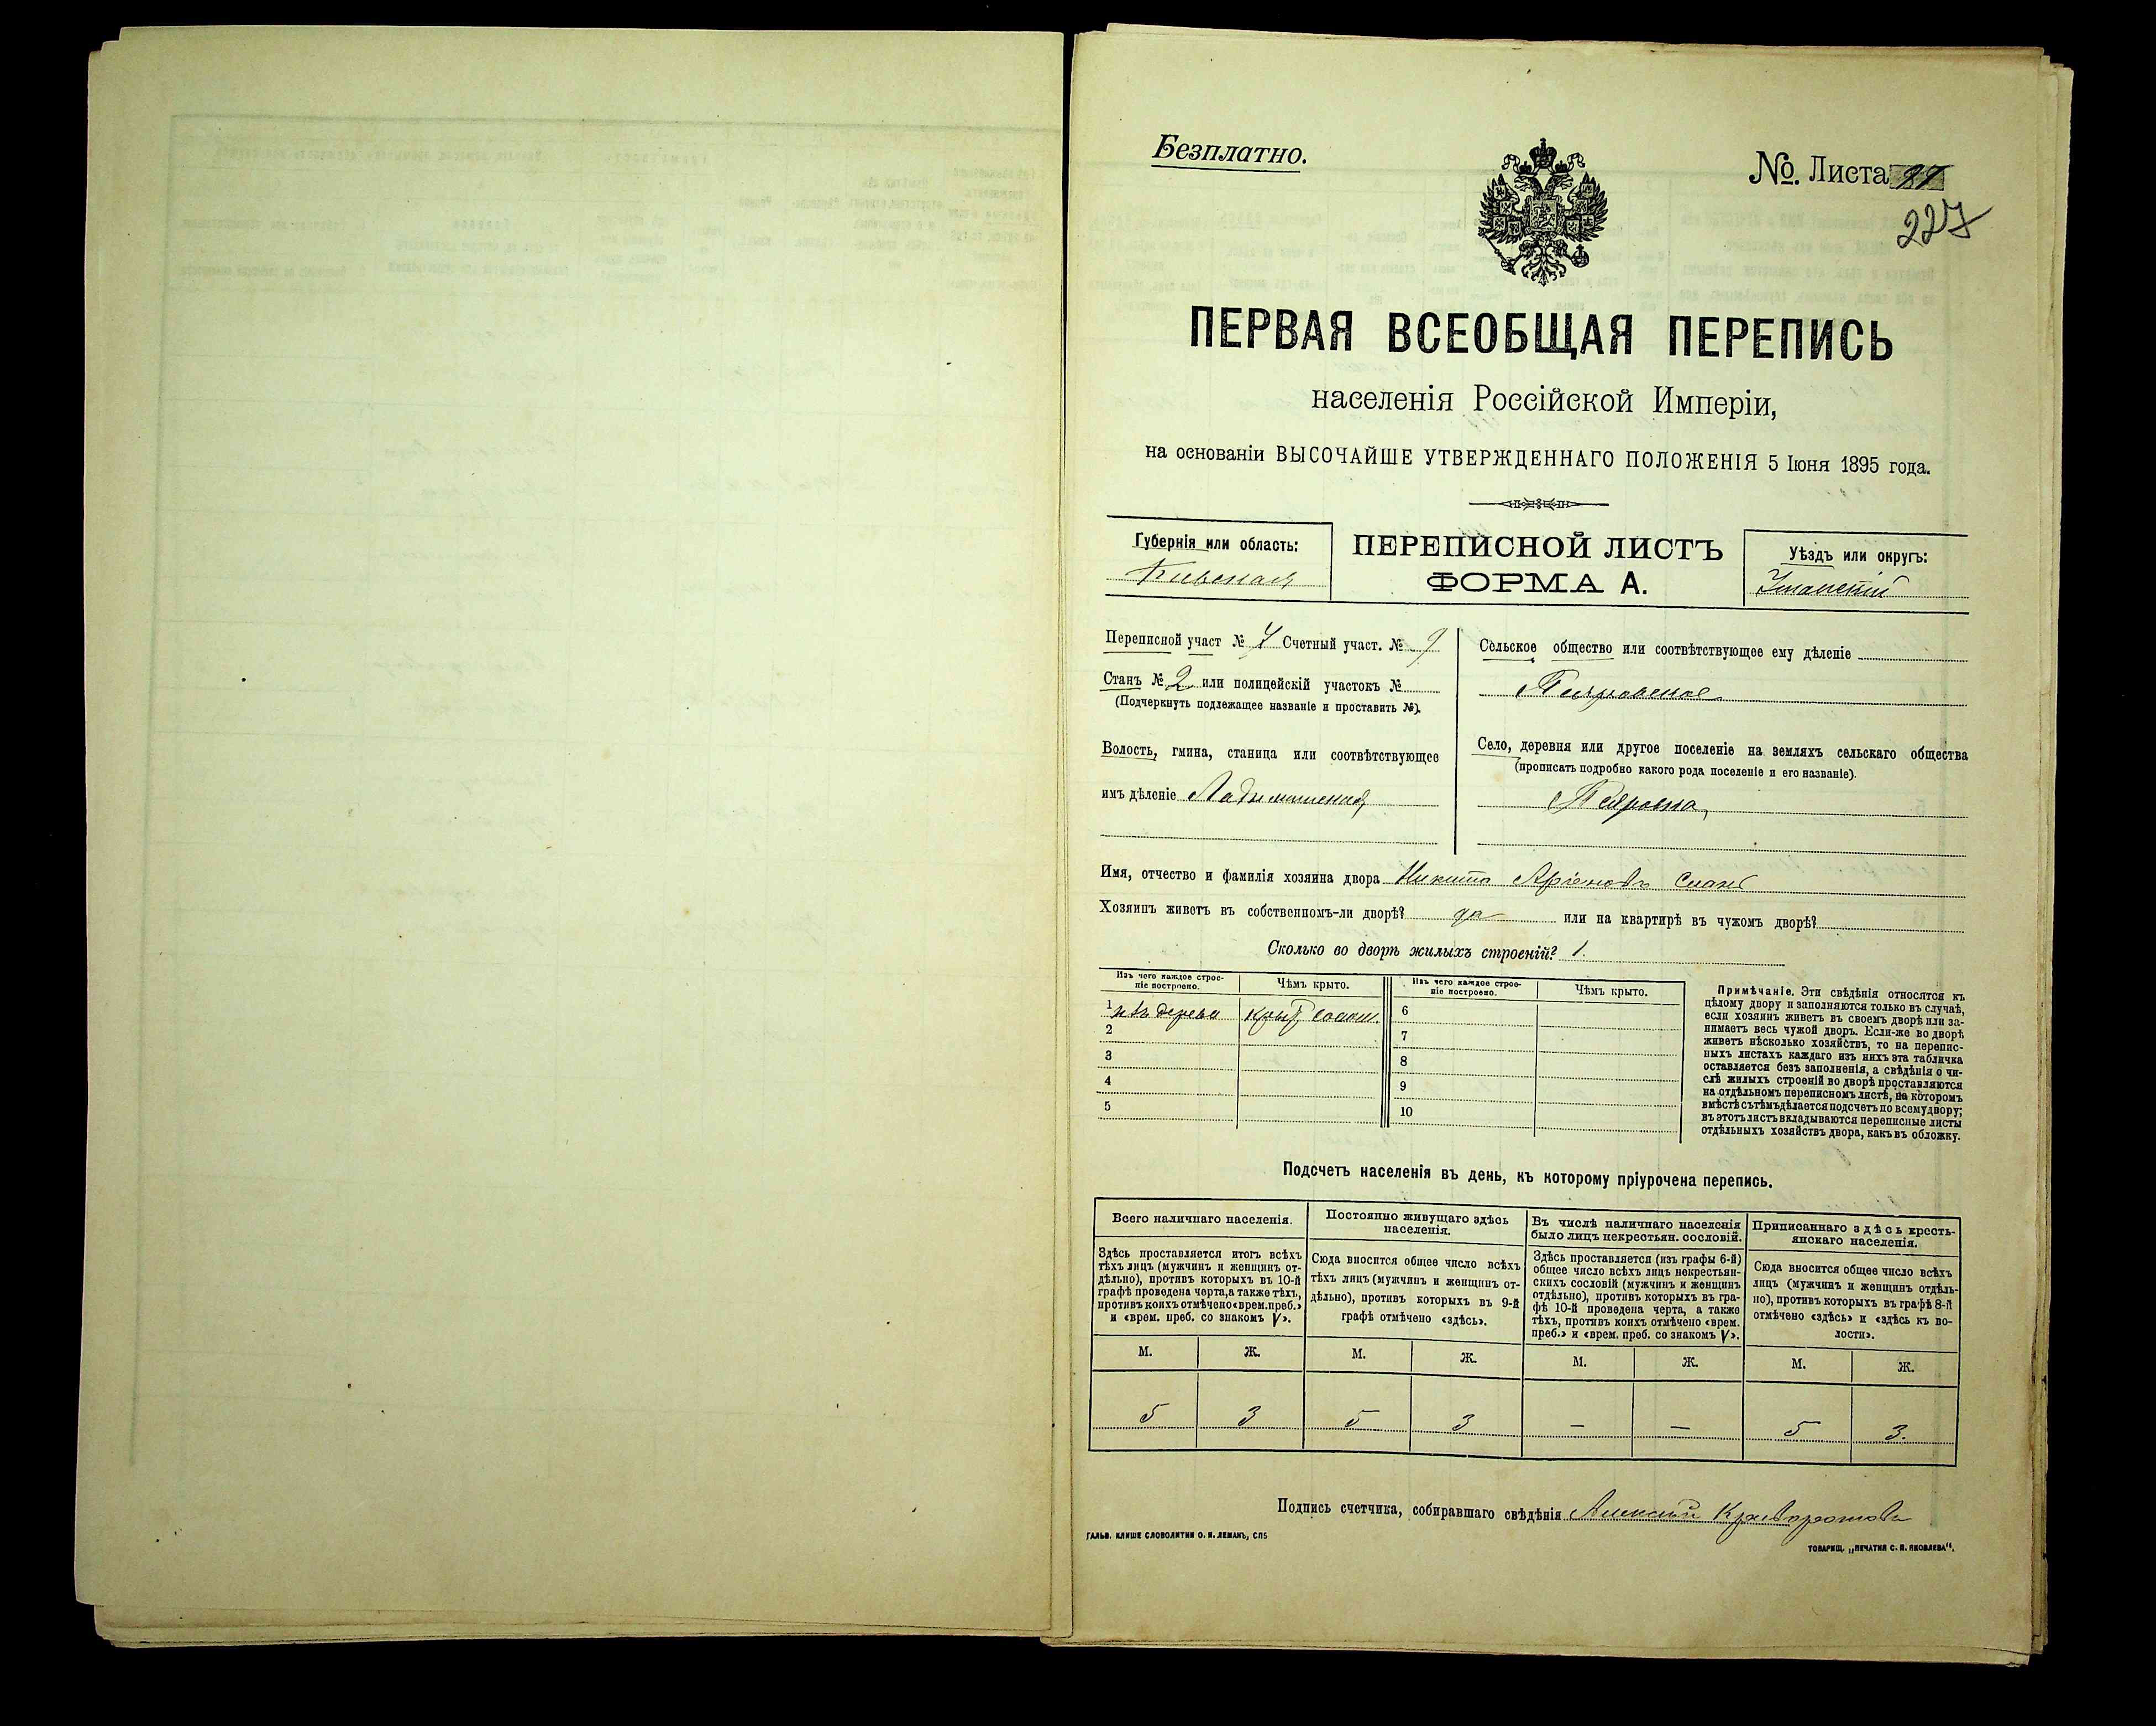 Безплатно.
№. Листа
227
ПЕРВАЯ ВСЕОБЩАЯ ПЕРЕПИСЬ
населенія Россійской Имперіи,
на основаніи ВЫСОЧАЙШЕ УТВЕРЖДЕННАГО ПОЛОЖЕНІЯ 5 Іюня 1895 года.
Губернія или область:
Кіевская
ПЕРЕПИСНОЙ ЛИСТЪ
ФОРМА А.
Уѣздъ или округъ:
Уманскій
Переписной участ № 7 Счетный участ. № 9
Станъ № 2 или полицейскій участокъ №
(Подчеркнуть подлежащее названіе и проставить №).
Волость, гмина, станица или соотвѣтствующее
имъ дѣленіе Ладыжинская
Сельское общество или соотвѣтствующее ему дѣленіе
Село, деревня или другое поселеніе на земляхъ сельскаго общества
(прописать подробно какого рода поселеніе и его названіе).
Имя, отчество и фамилія хозяина двора Никита
Хозяинъ живетъ въ собственномъ-ли дворѣ? да или на квартирѣ въ чужомъ дворѣ?
Сколько во дворѣ жилыхъ строеній? 1.
Изъ чего каждое строе-
ніе построено.
Чѣмъ крыто.
1 изъ дерева
2
3
4
5
Изъ чего каждое строе-
ніе построено.
Чѣмъ крыто.
6
7
8
9
10
Примѣчаніе. Эти свѣдѣнія относятся къ
цѣлому двору и заполняются только въ случаѣ,
если хозяинъ живетъ въ своемъ дворѣ или за-
нимаетъ весь чужой дворъ. Если-же во дворѣ
живетъ нѣсколько хозяйствъ, то на перепис-
ныхъ листахъ каждаго изъ нихъ эта табличка
оставляется безъ заполненія, а свѣдѣнія о чи-
слѣ жилыхъ строеній во дворѣ проставляются
на отдѣльномъ переписномъ листѣ, на которомъ
вмѣстѣ съ тѣмъ дѣлается подсчетъ по всему двору;
въ этотъ листъ вкладываются переписные листы
отдѣльныхъ хозяйствъ двора, какъ въ обложку.
Подсчетъ населенія въ день, къ которому пріурочена перепись.
Всего наличнаго населенія.
Здѣсь проставляется итогъ всѣхъ
тѣхъ лицъ (мужчинъ и женщинъ от-
дѣльно), противъ которыхъ въ 10-й
графѣ проведена черта, а также тѣхъ,
противъ коихъ отмѣчено «врем. преб.»
и «врем. преб. со знакомъ V».
М. Ж.
5 3
Постоянно живущаго здѣсь
населенія.
Сюда вносится общее число всѣхъ
тѣхъ лицъ (мужчинъ и женщинъ от-
дѣльно), противъ которыхъ въ 9-й
графѣ отмѣчено «здѣсь».
М. Ж.
5 3
Въ числѣ наличнаго населенія
было лицъ некрестьян. сословій.
Здѣсь проставляется (изъ графы 6-й)
общее число всѣхъ лицъ некрестьян-
скихъ сословій (мужчинъ и женщинъ
отдѣльно), противъ которыхъ въ гра-
фѣ 10-й проведена черта, а также
тѣхъ, противъ коихъ отмѣчено «врем.
преб.» и «врем. преб. со знакомъ V».
М. Ж.
— —
Приписаннаго здѣсь кресть-
янскаго населенія.
Сюда вносится общее число всѣхъ
лицъ (мужчинъ и женщинъ отдѣль-
но), противъ которыхъ въ графѣ 8-й
отмѣчено «здѣсь» и «здѣсь къ во-
лости».
М. Ж.
5 3.
Подпись счетчика, собиравшаго свѣдѣнія Алексѣй
ГАЛЬВ. КЛИШЕ СЛОВОЛИТНИ О. И. ЛЕМАНЪ, СПБ
ТОВАРИЩ. „ПЕЧАТНЯ С. П. ЯКОВЛЕВА“.